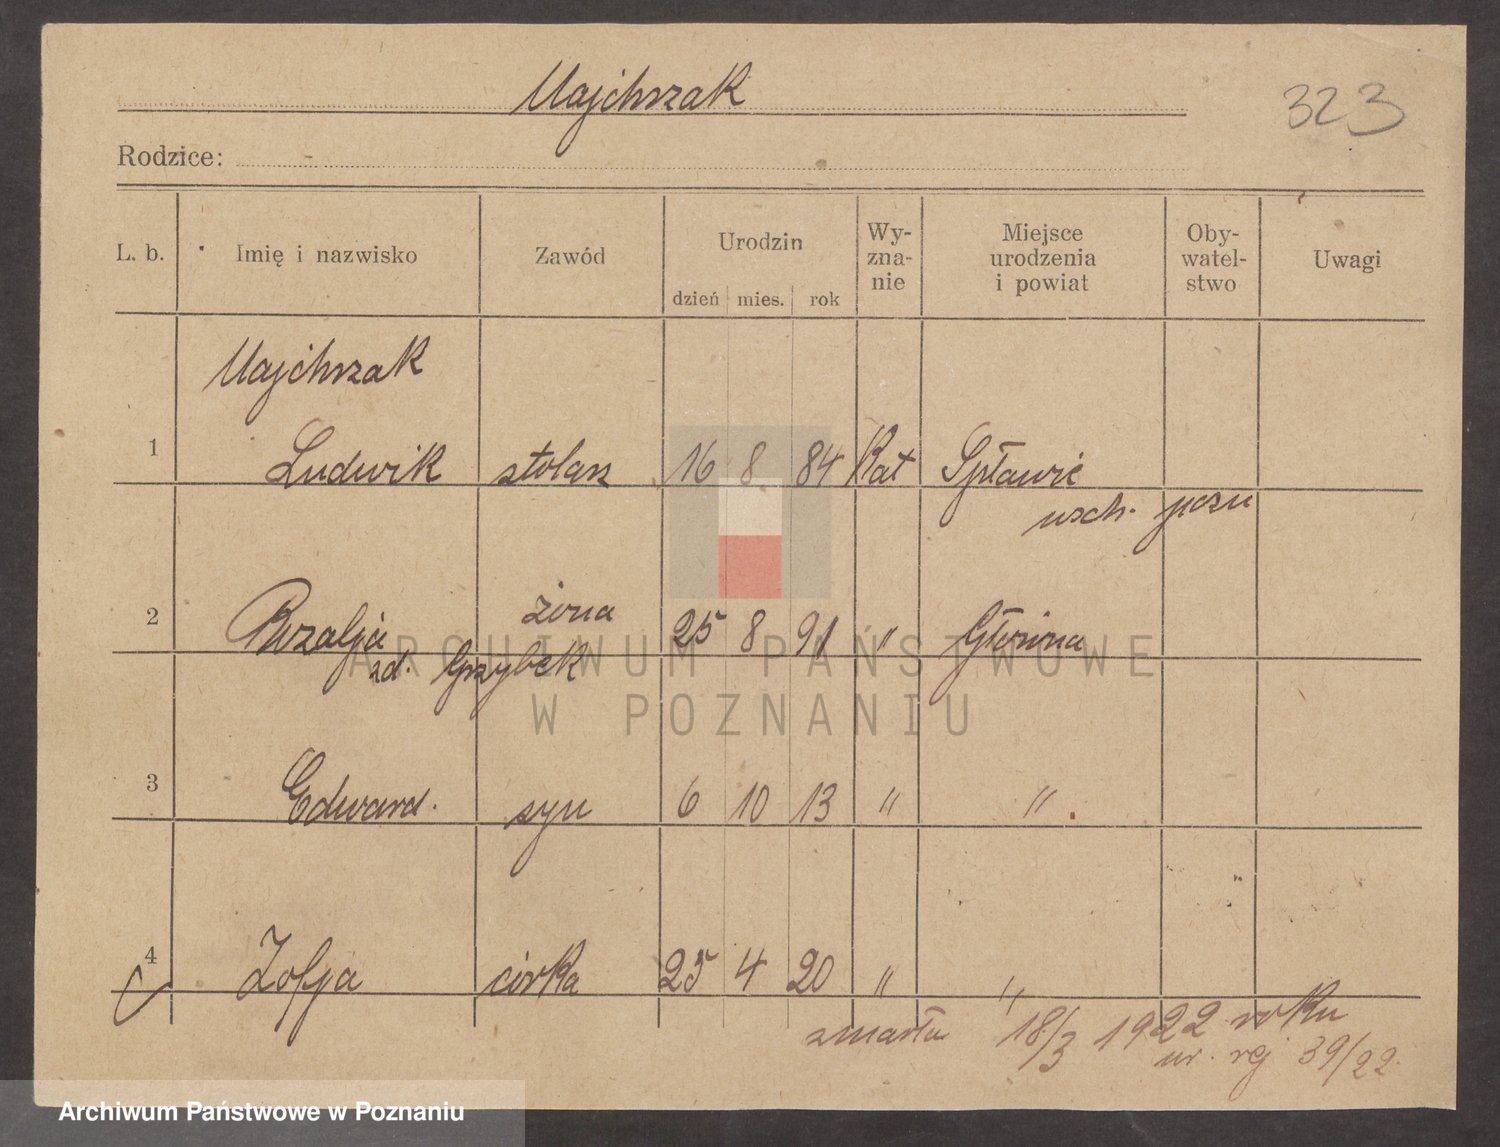 Majchrzak
323
Rodzice:
L. b. Imię i nazwisko Zawód Urodzin dzień mies. rok Wy-zna-nie Miejsce urodzenia i powiat Oby-watel-stwo Uwagi
Majchrzak
1 Ludwik stolarz 16 8 84 Kat Spławie
wsch. pozn
2 Rozalja żona 25 8 91 " Główna
zd. Grzybek
3 Edward. syn 6 10 13 " "
4 Zofja córka 25 4 20 " "
zmarła 18/3 1922 roku
nr. rej 39/22.
ARCHIWUM PAŃSTWOWE
W POZNANIU
Archiwum Państwowe w Poznaniu